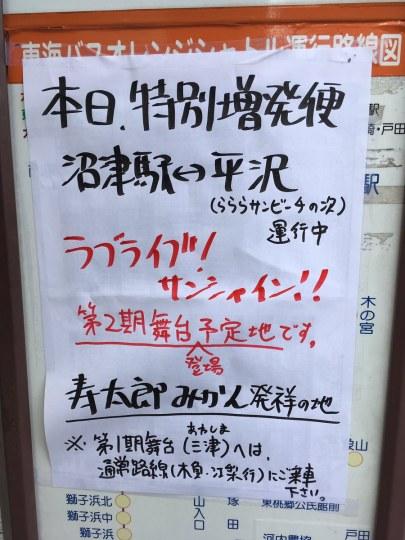 東海バスオレンジシャトル運行路線図
本日、特別増発便
沼津駅↔平沢
(らららサンビーチの次)
運行中
ラブライブ!
サンシャイン!!
第2期舞台予定地です。
登場
寿太郎みかん発祥の地
あわしま
※ 第1期舞台(三津)へは、
通常路線(木負・江梨行)にご乗車
下さい。
駅
崎・戸田
駅
木の宮
象山
獅子浜北
獅子浜中
獅子浜
山入口
塚田